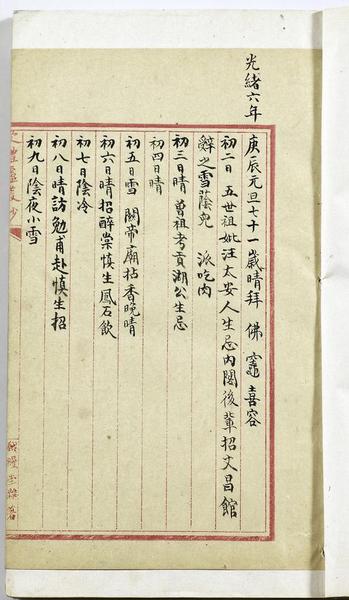 光緒六年
庚辰元旦七十一歲晴拜　佛　竈　喜容
初二日　五世祖妣汪太安人生忌內閣後輩招文昌館
辭之雪蔭兒　派吃肉
初三日晴　曾祖考貢湖公生忌
初四日晴
初五日雪　關帝廟拈香晚晴
初六日晴招醉棠慎生鳳石飲
初七日陰冷
初八日晴訪勉甫赴慎生招
初九日陰夜小雪